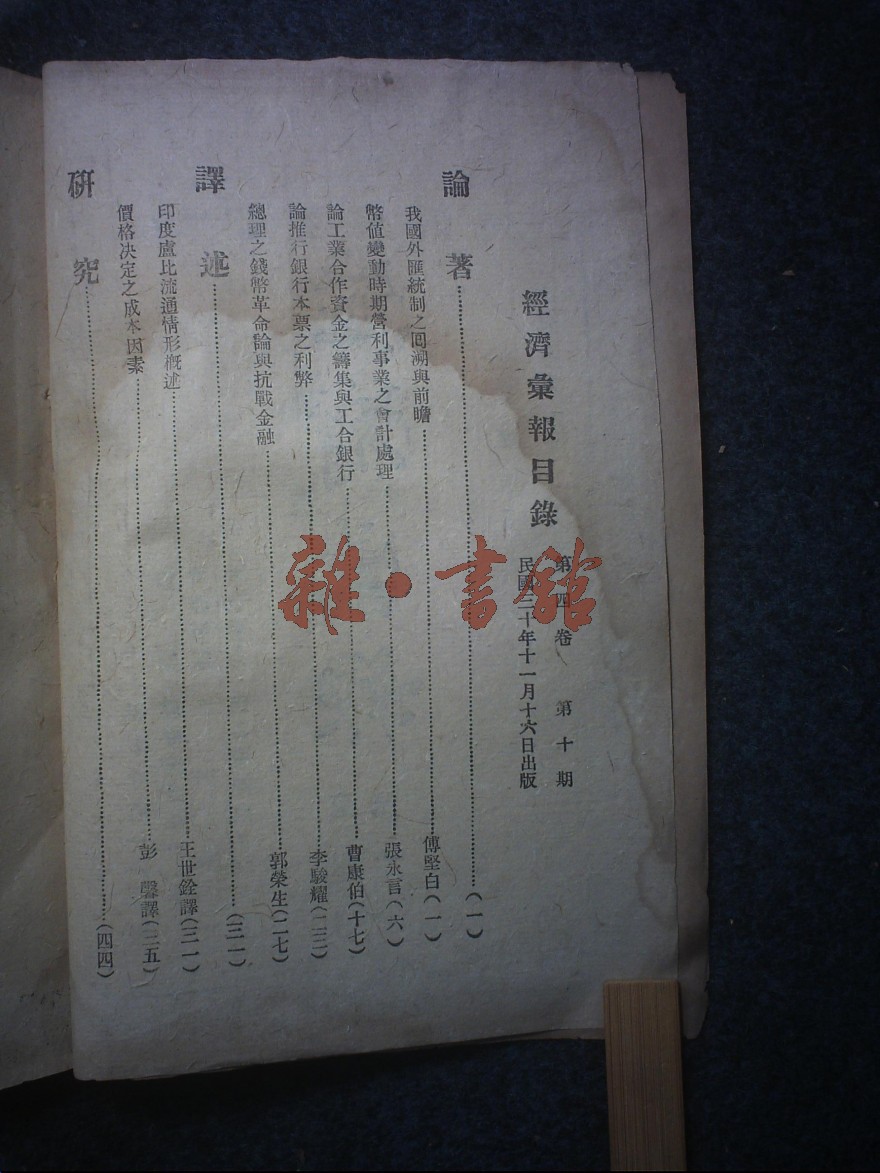 經濟彙報目錄
第四卷 第十期
民國三十年十一月十六日出版
論著……(一)
我國外匯統制之回溯與前瞻……傅堅白(一)
幣值變動時期營利事業之會計處理……張永言(六)
論工業合作資金之籌集與工合銀行……曹康伯(十七)
論推行銀行本票之利弊……李駿耀(二三)
總理之錢幣革命論與抗戰金融……郭榮生(二七)
譯述……(三一)
印度盧比流通情形概述……王世銓譯(三一)
價格決定之成本因素……彭馨譯(三五)
研究……(四四)
雜·書館